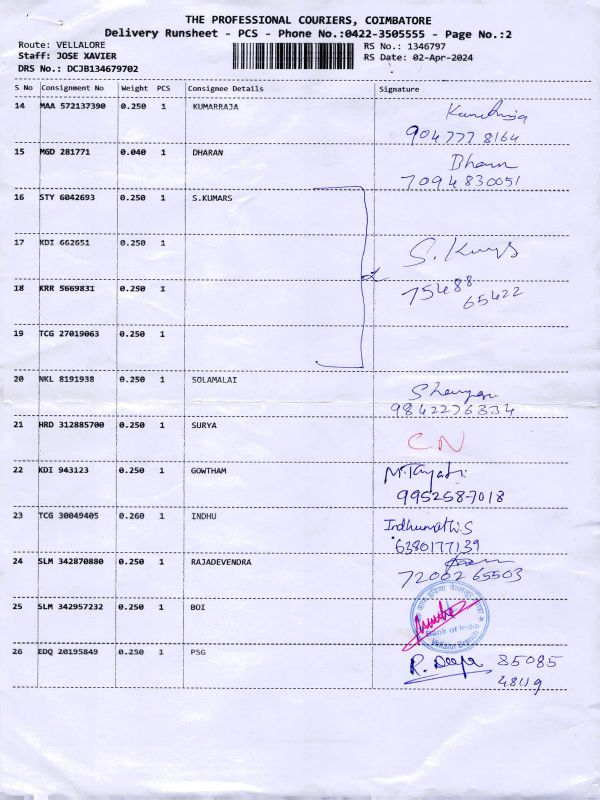 THE PROFESSIONAL COURIERS, COIMBATORE
Delivery Runsheet - PCS - Phone No.:0422-3505555 - Page No.:2
Route: VELLALORE
RS No.: 1346797
Staff: JOSE XAVIER
RS Date: 02-Apr-2024
DRS No.: DCJB134679702
S No Consignment No Weight PCS Consignee Details Signature
14 MAA 572137390 0.250 1 KUMARRAJA
904777 8164
15 MGD 281771 0.040 1 DHARAN
7094830051
16 STY 6042693 0.250 1 S.KUMARS
17 KDI 662651 0.250 1
18 KRR 5669831 0.250 1
75488
65422
19 TCG 27019063 0.250 1
20 NKL 8191938 0.250 1 SOLAMALAI
9842276334
21 HRD 312885700 0.250 1 SURYA
CN
22 KDI 943123 0.250 1 GOWTHAM
9952587018
23 TCG 30049405 0.260 1 INDHU
Indhumathi.S
6380177139
24 SLM 342870880 0.250 1 RAJADEVENDRA
72002 65503
25 SLM 342957232 0.250 1 BOI
Bank of India
26 EDQ 20195849 0.250 1 PSG
R. Deepa 85085
48119